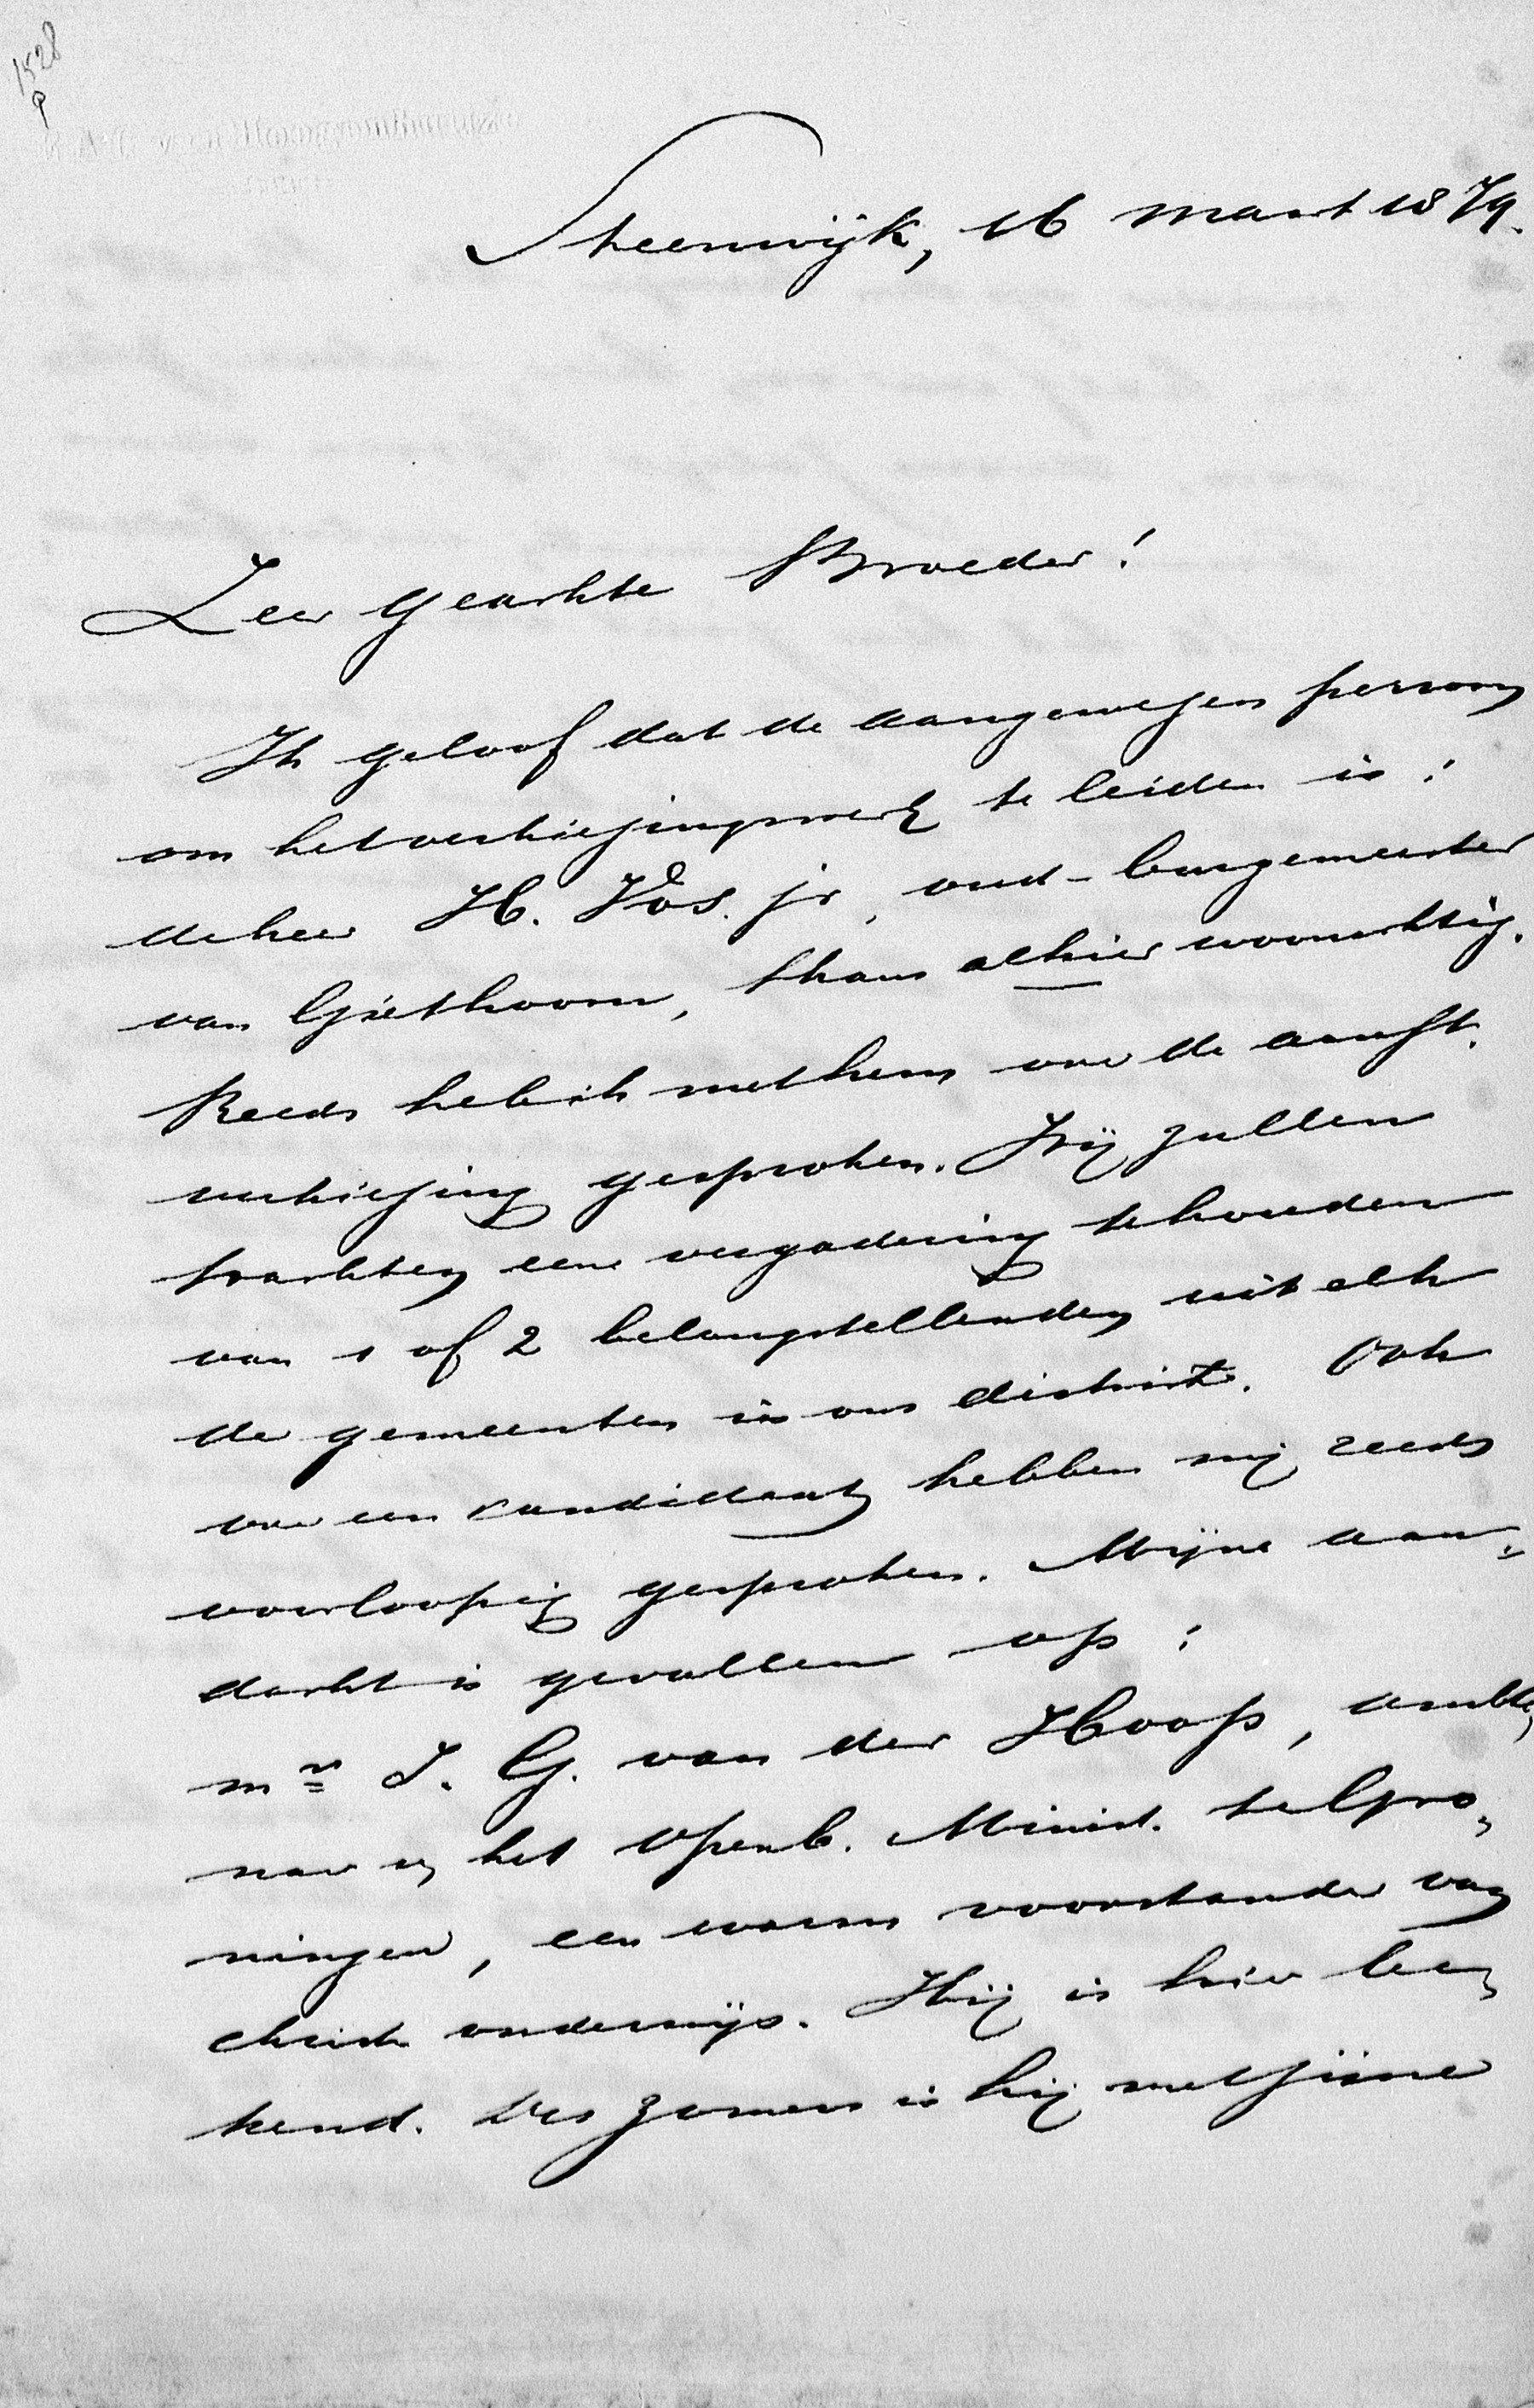 1528
P
Steenwijk, 16 Maart 1879.
Zeer geachte Broeder!
Ik geloof dat de aangewezen persoon
om het verkiezingswerk te leiden is:
de heer H. Vos. jr, oud-burgemeester
van Giethoorn, thans alhier woonachtig.
Reeds heb ik met hem over de aanst.
verkiezing gesproken. Wij zullen
trachten eene vergadering te houden
van 1 of 2 belangstellenden uit elk
der gemeenten in ons district. Ook
over een candidaat hebben wij reeds
voorloopig gesproken. Mijne aan„
dacht is gevallen op:
mr J. G. van der Hoop, ambte„
naar v. het Openb. Minist. te Gro„
ningen, een warm voorstander van
christ. onderwijs. Hij is hier be„
kend. Des zomers is hij met zijne